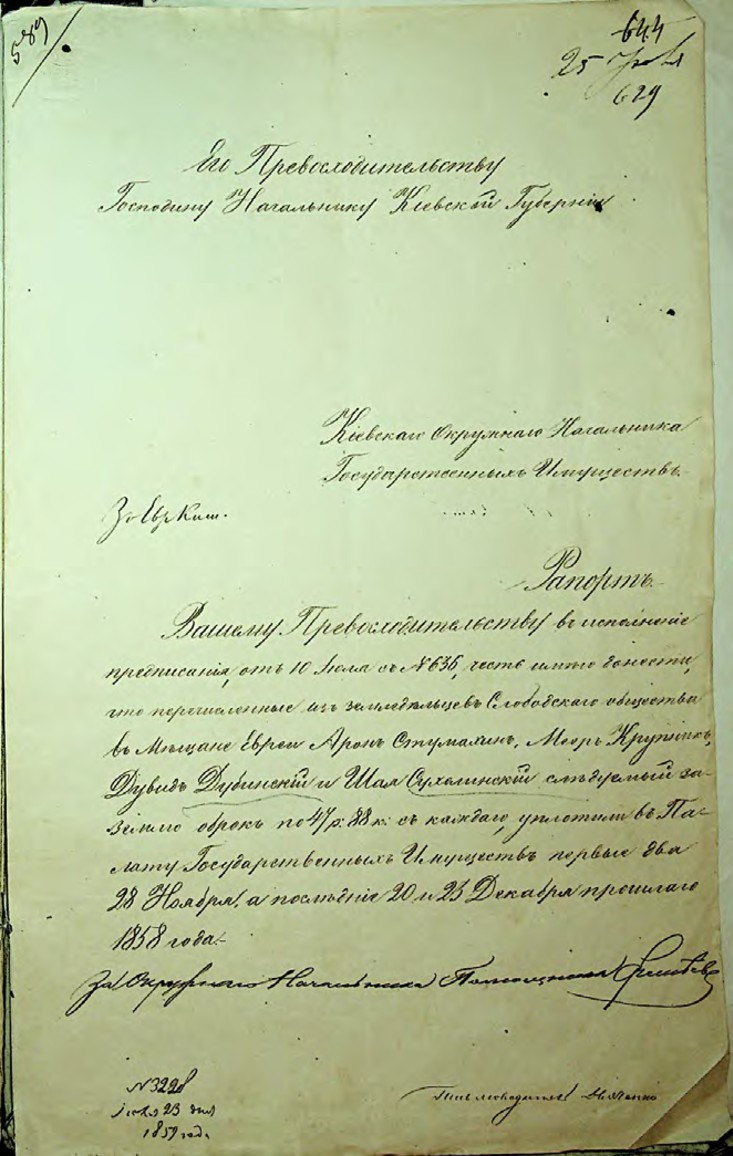 589
644
25
629
Его Превосходительству
Господину Начальнику Кіевской Губерніи
Кіевскаго Окружнаго Начальника
Государственныхъ Имуществъ.
Рапортъ.
Вашему Превосходительству во исполненіе
предписанія, отъ 10 Іюля съ № 636, честь имѣю донести,
что перечисленные изъ земледѣльцевъ Слободскаго общества
въ Мѣщане Евреи Аронъ Стумахинъ, Меоръ Крупникъ,
Дувидъ Дубинскій и Шая Сухолинскій слѣдуемый за
землю оброкъ по 47 р: 88 к: съ каждаго, уплотили въ Па-
лату Государственныхъ Имуществъ первые два
28 Ноября, а послѣдніе 20 и 23 Декабря прошлаго
1858 года.
За Окружнаго Начальника Помощникъ
№ 3228
Іюля 23 дня
1859 года
Письмоводитель